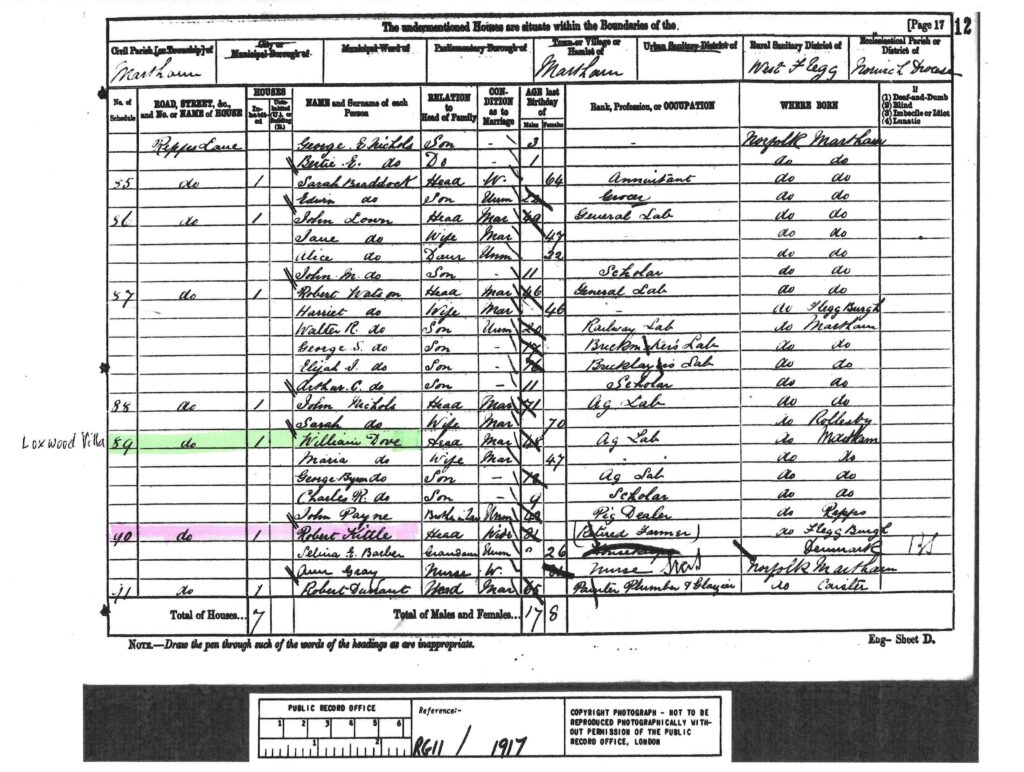 The undermentioned Houses are situate within the Boundaries of the. [Page 17 12
Civil Parish [or Township] of City or Municipal Borough of Municipal Ward of Parliamentary Borough of Town or Village or Hamlet of Urban Sanitary District of Rural Sanitary District of Ecclesiastical Parish or District of
Martham Martham West Flegg Norwich Diocese
No. of Schedule ROAD, STREET, &c., and No. or NAME of HOUSE HOUSES Inhabited Uninhabited (U.), or Building (B.) NAME and Surname of each Person RELATION to Head of Family CONDITION as to Marriage AGE last Birthday of Males Females Rank, Profession, or OCCUPATION WHERE BORN If (1) Deaf-and-Dumb (2) Blind (3) Imbecile or Idiot (4) Lunatic
Repps Lane George E Nichols Son - 3 - Norfolk Martham
Bertie E. do Do - 1 do do
85 do 1 Sarah Braddock Head W. 64 Annuitant do do
Edwin do Son Unm Grocer do do
86 do 1 John Lown Head Mar General Lab do do
Jane do Wife Mar 47 do do
Alice do Daur Unm 22 do do
John M. do Son 11 Scholar do do
87 do 1 Robert Watson Head Mar 46 General Lab do do
Harriet do Wife Mar 46 - do Flegg Burgh
Walter R. do Son Unm 20 Railway Lab do Martham
George S. do Son - Brickmakers Lab do do
Elijah J. do Son - Bricklayers Lab do do
Arthur C. do Son - 11 Scholar do do
88 do 1 John Nichols Head Mar 71 Ag Lab do do
Sarah do Wife Mar 70 do Rollesby
Loxwood Villa 89 do 1 William Dove Head Mar 48 Ag Lab do Martham
Maria do Wife Mar 47 - do do
George Byron do Son - Ag Lab do do
Charles R. do Son - 9 Scholar do do
John Payne Unm Pig Dealer do Repps
90 do 1 Robert Kittle Head Widr (Retired Farmer) do Flegg Burgh
Selina E. Barber Grandaur Unm " 26 Denmark
Ann Gray Nurse W. Nurse Norfolk Martham
do 1 Robert Durrant Head Mar Painter Plumber & Glazier do Caister
Total of Houses... 7 Total of Males and Females... 17 8
NOTE.—Draw the pen through such of the words of the headings as are inappropriate. Eng- Sheet D.
PUBLIC RECORD OFFICE
1 2 3 4 5 6
1 2
Reference:-
RG11 / 1917
COPYRIGHT PHOTOGRAPH - NOT TO BE
REPRODUCED PHOTOGRAPHICALLY WITH-
OUT PERMISSION OF THE PUBLIC
RECORD OFFICE, LONDON